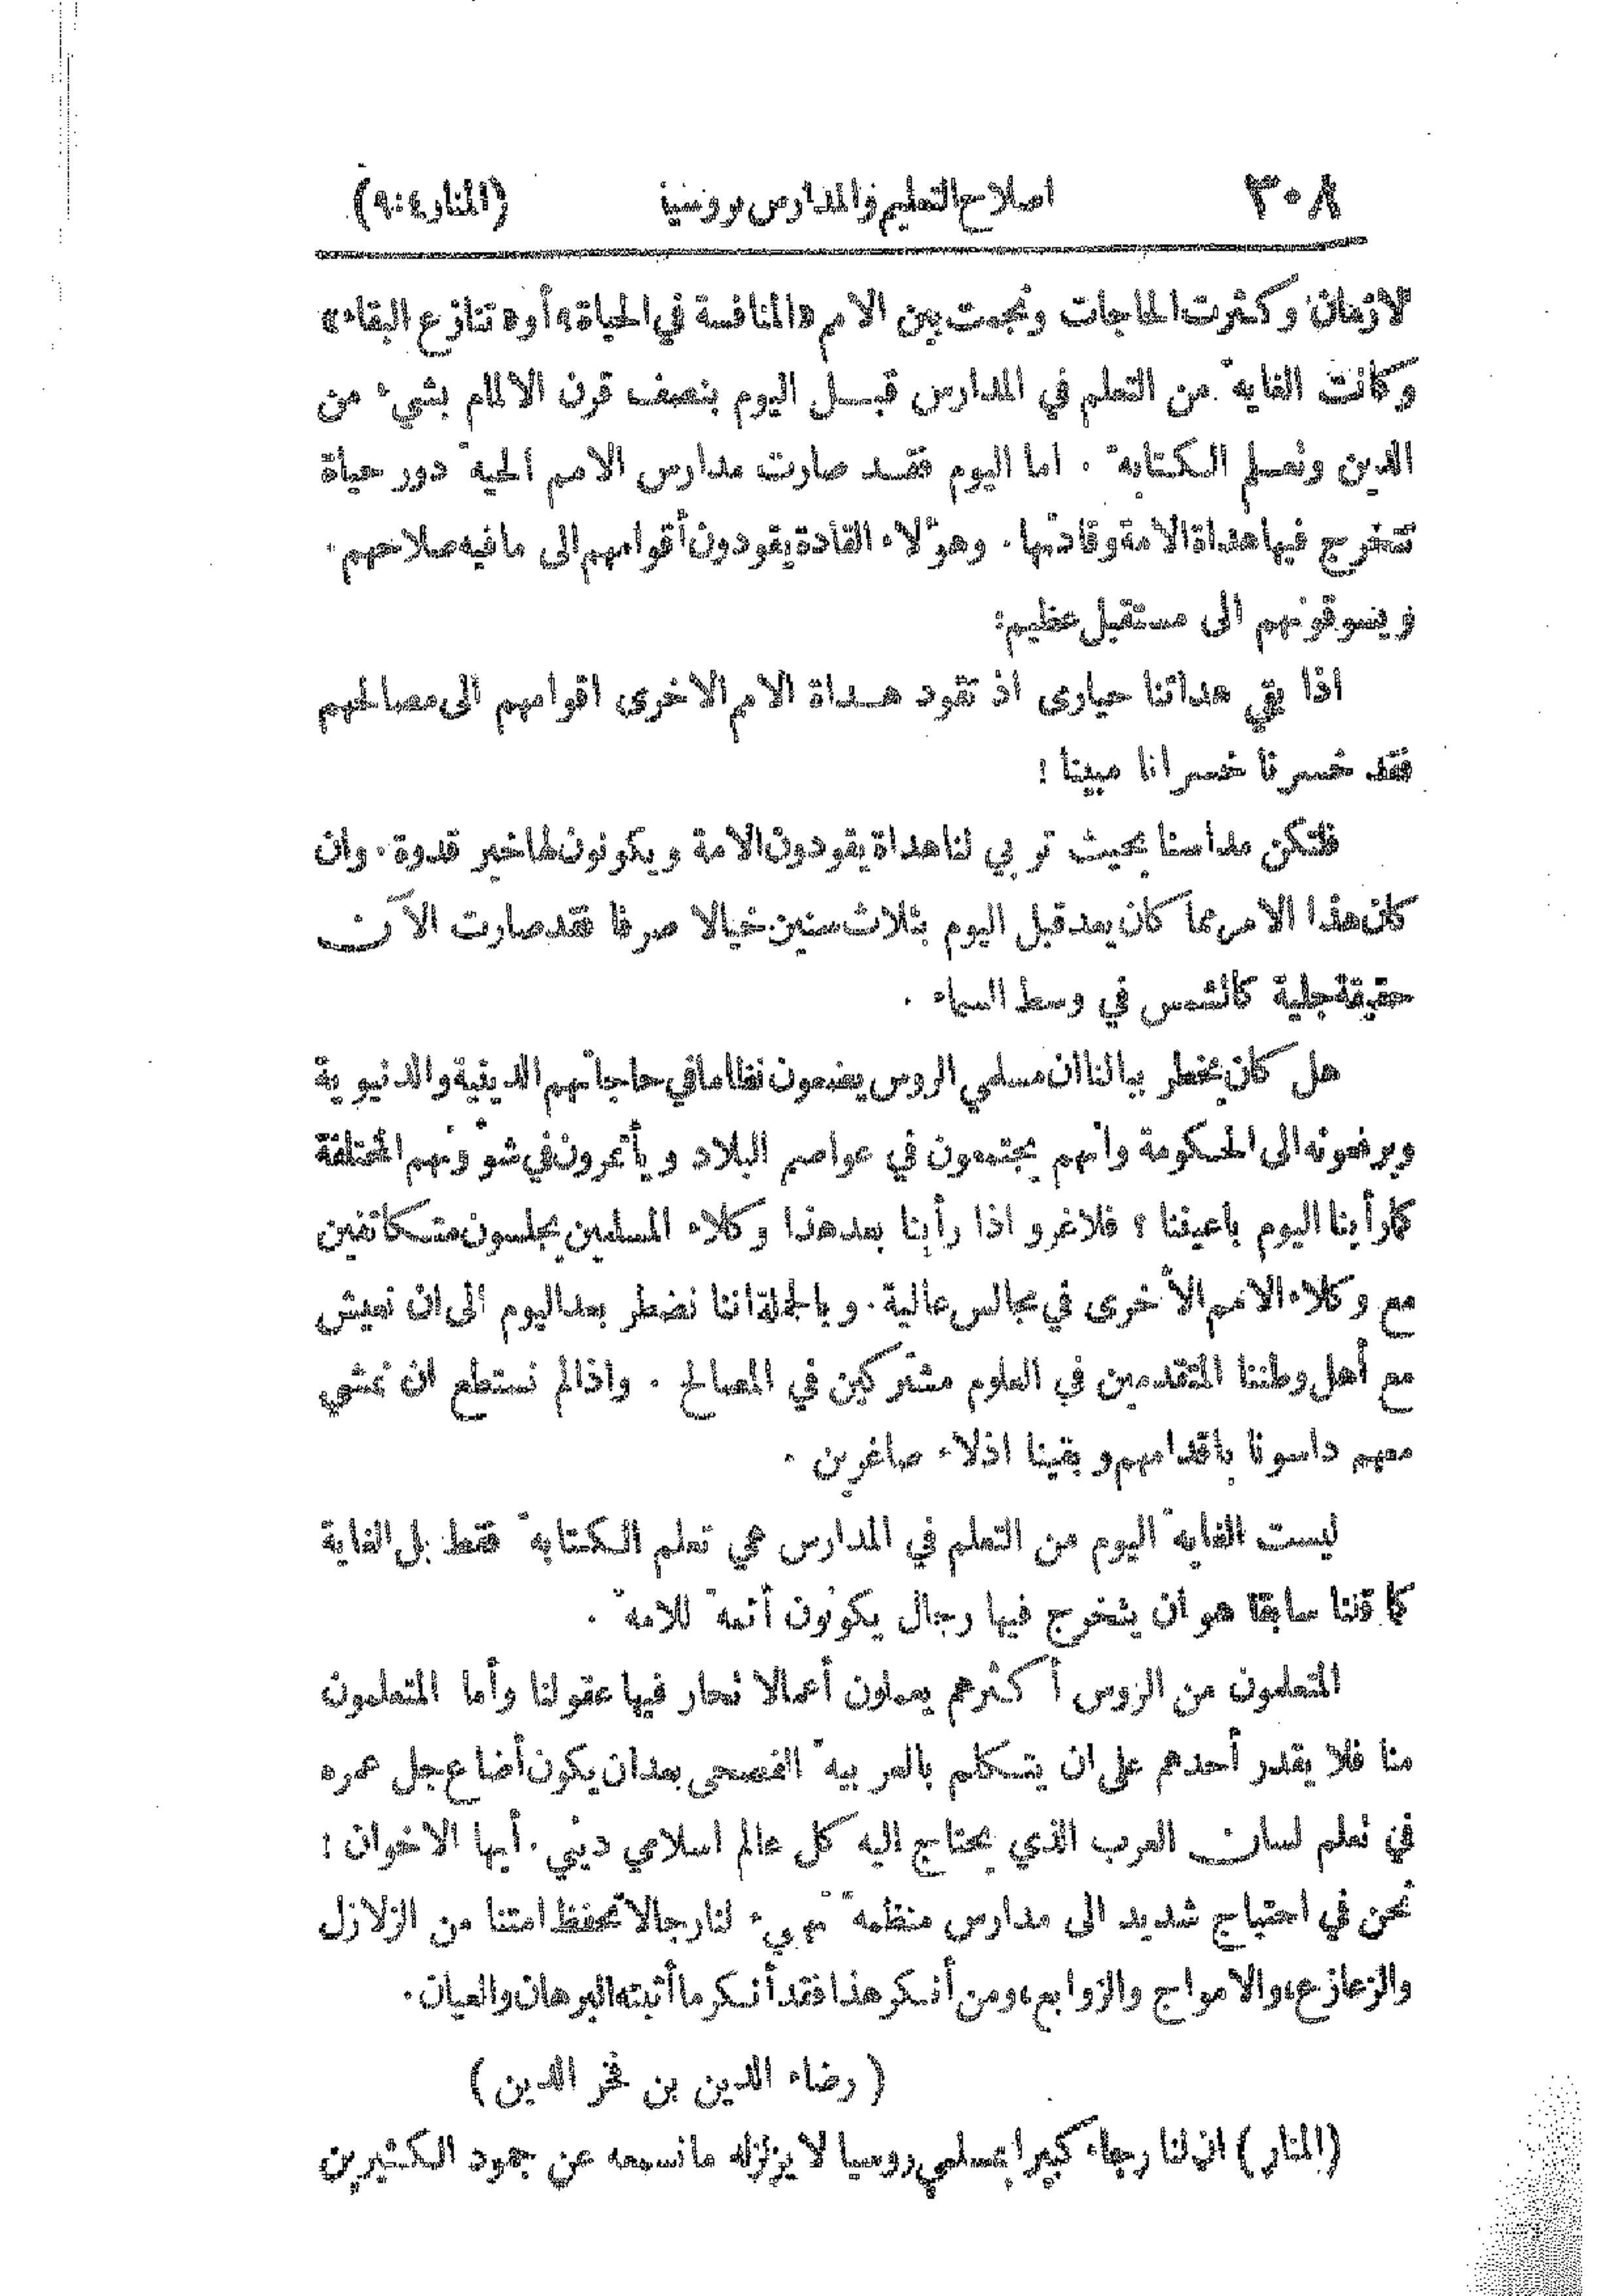 ٣٠٨ اصلاح التعليم والمدارس بروسيا (المنار ٤:٩)
الازمان وكثرت الحاجات ونجمت بين الامم «المنافسة في الحياة» أو «تنازع البقاء»
وكانت الغاية من التعلم في المدارس قبل اليوم بنصف قرن الالمام بشيء من
الدين وتعلم الكتابة . اما اليوم فقد صارت مدارس الامم الحية دور حياة
تتخرج فيها هداة الامة وقادتها . وهؤلاء القادة يقودون أقوامهم الى ما فيه صلاحهم .
ويسوقونهم الى مستقبل عظيم :
اذا بقي هداتنا حيارى اذ تقود هداة الامم الاخرى اقوامهم الى مصالحهم
فقد خسرنا خسرانا مبينا !
فلتكن مدارسنا بحيث تربي لنا هداة يقودون الامة ويكونون لها خير قدوة . وان
كان هذا الامر مما كان يعد قبل اليوم بثلاث سنين خيالا صرفا فقد صارت الآن
حقيقة جلية كالشمس في وسط السماء .
هل كان يخطر ببالنا ان مسلمي الروس يضعون نظاما في حاجاتهم الدينية والدنيوية
ويرفعونه الى الحكومة وانهم يجتمعون في عواصم البلاد ويأتمرون في شؤونهم المختلفة
كما رأينا اليوم باعيننا ؟ فلا غرو اذا رأينا بعد هذا وكلاء المسلمين يجلسون متكاتفين
مع وكلاء الامم الأخرى في مجالس عالية . وبالجملة اننا نضطر بعد اليوم الى ان نعيش
مع أهل وطننا المتقدمين في العلوم مشتركين في المصالح . واذا لم نستطع ان نمشي
معهم داسونا باقدامهم وبقينا اذلاء صاغرين .
ليست الغاية اليوم من التعلم في المدارس هي تعلم الكتابة فقط بل الغاية
كما قلنا سابقا هو ان يتخرج فيها رجال يكونون أئمة للامة .
المتعلمون من الروس أكثرهم يعملون أعمالا تحار فيها عقولنا وأما المتعلمون
منا فلا يقدر أحدهم على ان يتكلم بالعربية الفصحى بعد ان يكون أضاع جل عمره
في تعلم لسان العرب الذي يحتاج اليه كل عالم اسلامي ديني . أيها الاخوان :
نحن في احتياج شديد الى مدارس منظمة تهيء لنا رجالا تحفظ امتنا من الزلازل
والزعازع، والامواج والزوابع، ومن أنكر هذا فقد أنكر ما أثبته البرهان والعيان .
( رضاء الدين بن فخر الدين )
(المنار) ان لنا رجاء كبيرا بمسلمي روسيا لا يزلزله ما نسمعه عن جمود الكثيرين